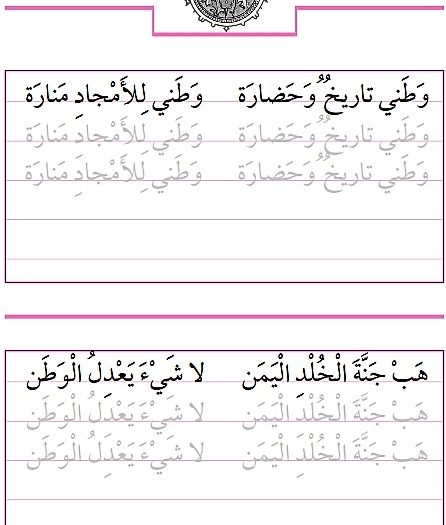 وَطَني تاريخٌ وَحَضارَة وَطَني لِلأَمْجادِ مَنارَة
وَطَني تاريخٌ وَحَضارَة وَطَني لِلأَمْجادِ مَنارَة
وَطَني تاريخٌ وَحَضارَة وَطَني لِلأَمْجادِ مَنارَة
هَبْ جَنَّةَ الْخُلْدِ الْيَمَن لا شَيْءَ يَعْدِلُ الْوَطَن
هَبْ جَنَّةَ الْخُلْدِ الْيَمَن لا شَيْءَ يَعْدِلُ الْوَطَن
هَبْ جَنَّةَ الْخُلْدِ الْيَمَن لا شَيْءَ يَعْدِلُ الْوَطَن